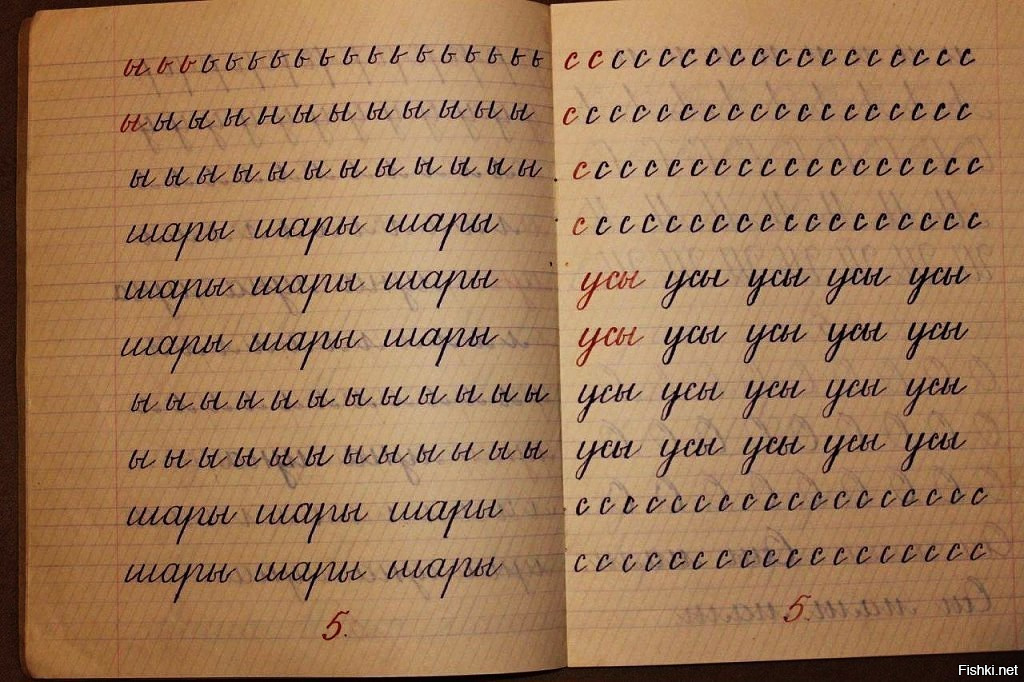 ы ь ь ь ь ь ь ь ь ь ь ь ь ь ь ь ь ь
ы ы ы ы ы ы ы ы ы ы ы ы
ы ы ы ы ы ы ы ы ы ы ы ы
шары шары шары
шары шары шары
шары шары шары
ы ы ы ы ы ы ы ы ы ы ы ы
ы ы ы ы ы ы ы ы ы ы ы ы
шары шары шары
шары шары шары
5.
с с с с с с с с с с с с с с с с с с
с с с с с с с с с с с с с с с с с с
с с с с с с с с с с с с с с с с с с
с с с с с с с с с с с с с с с с с с
усы усы усы усы усы
усы усы усы усы усы
усы усы усы усы усы
усы усы усы усы усы
с с с с с с с с с с с с с с с с с с
с с с с с с с с с с с с с с с с с с
5.
Fishki.net